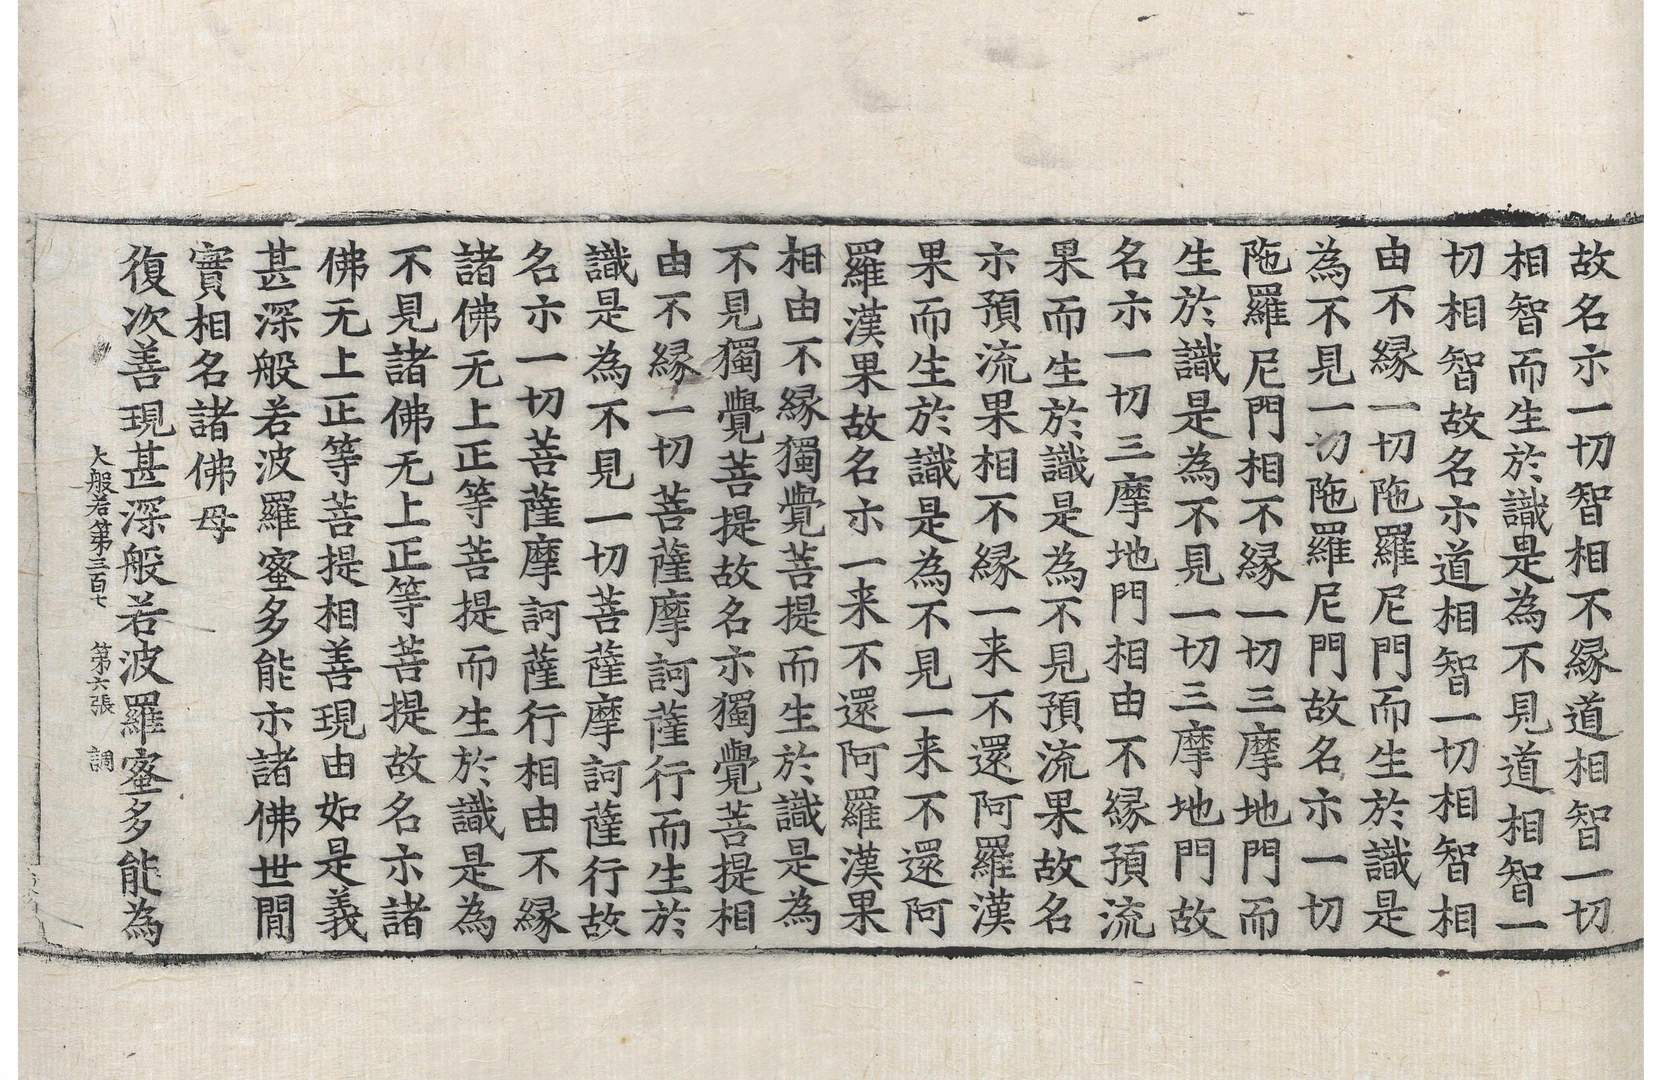 故名示一切智相不緣道相智一切
相智而生於識是為不見道相智一
切相智故名示道相智一切相智相
由不緣一切陁羅尼門而生於識是
為不見一切陁羅尼門故名示一切
陁羅尼門相不緣一切三摩地門而
生於識是為不見一切三摩地門故
名示一切三摩地門相由不緣預流
果而生於識是為不見預流果故名
示預流果相不緣一来不還阿羅漢
果而生於識是為不見一来不還阿
羅漢果故名示一来不還阿羅漢果
相由不緣獨覺菩提而生於識是為
不見獨覺菩提故名示獨覺菩提相
由不緣一切菩薩摩訶薩行而生於
識是為不見一切菩薩摩訶薩行故
名示一切菩薩摩訶薩行相由不緣
諸佛无上正等菩提而生於識是為
不見諸佛无上正等菩提故名示諸
佛无上正等菩提相善現由如是義
甚深般若波羅蜜多能示諸佛世閒
實相名諸佛母
復次善現甚深般若波羅蜜多能為
大般若第三百七 第六張 調